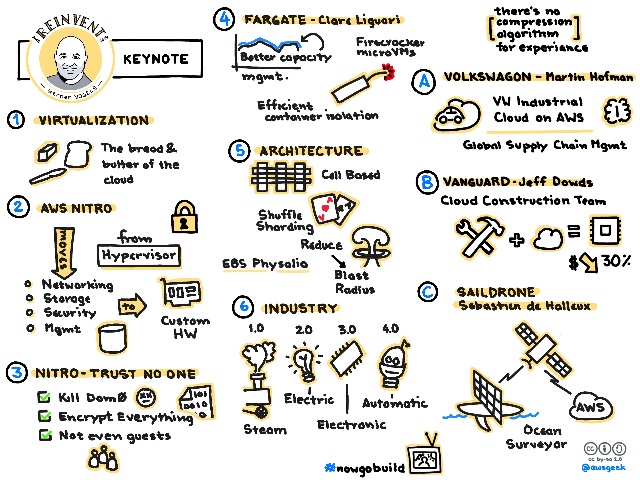 REINVENT
WERNER VOGELS
KEYNOTE
1 VIRTUALIZATION
The bread &
butter of the
cloud
2 AWS NITRO
MOVES
from
Hypervisor
Networking
Storage
Security
Mgmt
to
Custom
HW
3 NITRO - TRUST NO ONE
Kill Dom0
Encrypt Everything
Not even guests
4 FARGATE - Clare Liguori
Better capacity
mgmt.
Firecracker
microVMs
Efficient
container isolation
5 ARCHITECTURE
Cell Based
Shuffle
Sharding
A
Reduce
EBS Physalia
Blast
Radius
6 INDUSTRY
1.0 2.0 3.0 4.0
Electric
Automatic
Steam
Electronic
#nowgobuild
there's no
compression
algorithm
for experience
A VOLKSWAGON - Martin Hofman
VW Industrial
Cloud on AWS
Global Supply Chain Mgmt
B VANGUARD - Jeff Dowds
Cloud Construction Team
+ =
$ 30%
C SAILDRONE
Sebastien de Halleux
AWS
Ocean
Surveyor
cc by-sa 2.0
@awsgeek